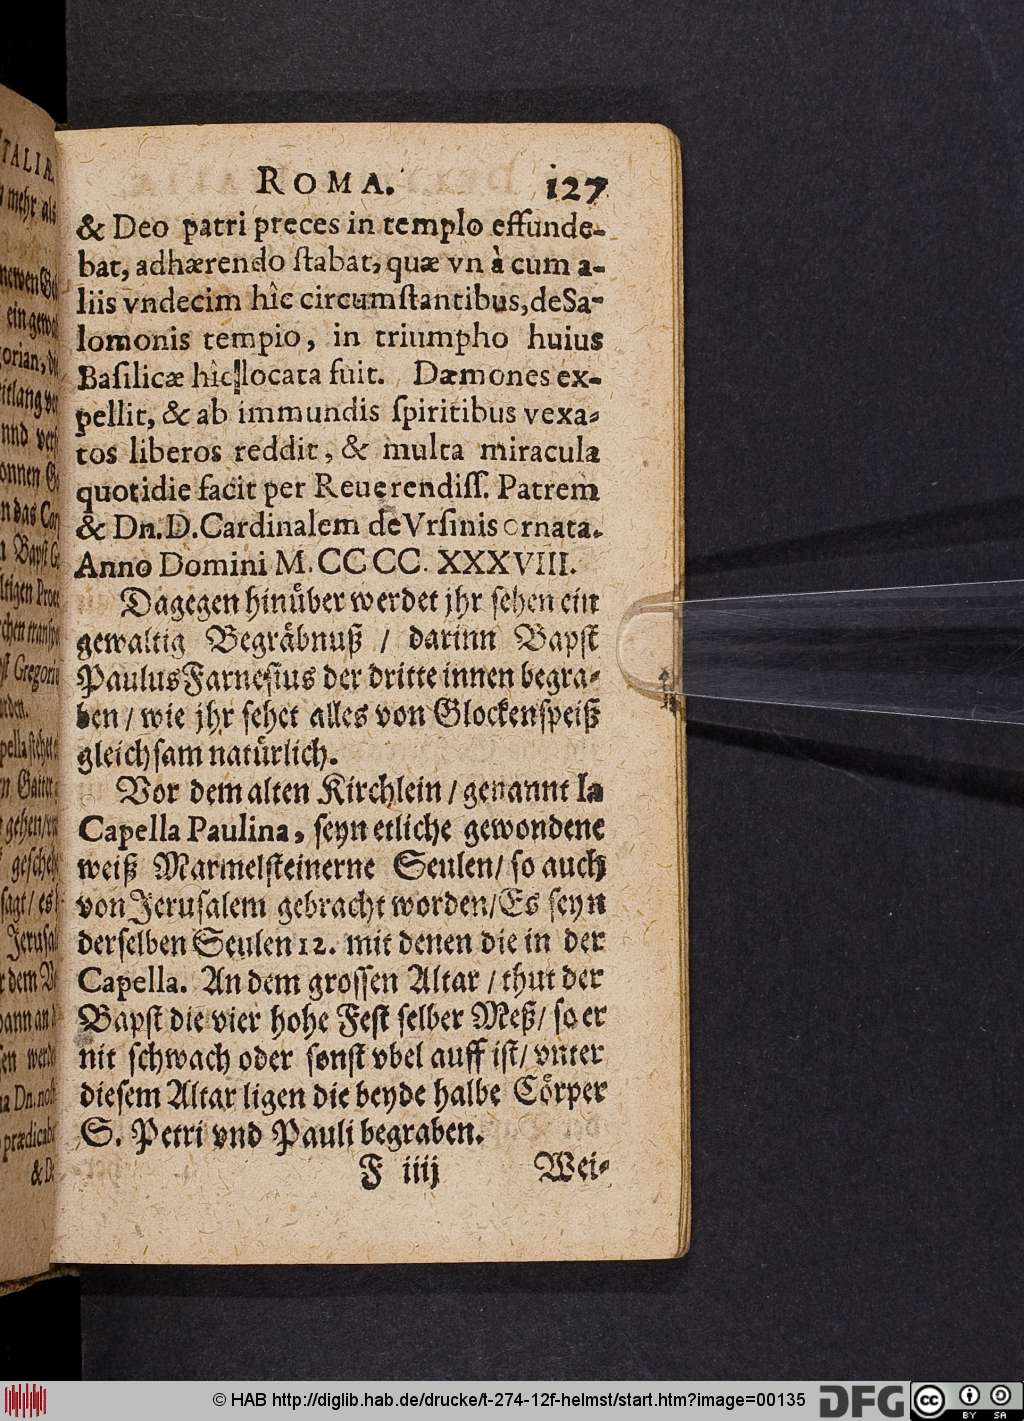 ROMA. 127
& Deo patri preces in templo effunde-
bat, adhærendo ſtabat, quæ vn à cum a-
liis vndecim hîc circumſtantibus, deSa-
lomonis tempio, in triumpho huius
Baſilicæ hîc locata fuit. Dæmones ex-
pellit, & ab immundis ſpiritibus vexa-
tos liberos reddit, & multa miracula
quotidie facit per Reuerendiſſ. Patrem
& Dn. D. Cardinalem de Vrſinis ornata.
Anno Domini M. CC CC. XXXVIII.
Dagegen hinüber werdet jhr ſehen ein
gewaltig Begräbnuß / darinn Bapſt
Paulus Farneſius der dritte innen begra-
ben / wie jhr ſehet alles von Glockenſpeiß
gleichſam natürlich.
Vor dem alten Kirchlein / genannt la
Capella Paulina, ſeyn etliche gewondene
weiß Marmelſteinerne Seulen / ſo auch
von Jeruſalem gebracht worden / Es ſeyn
derſelben Seulen 12. mit denen die in der
Capella. An dem groſſen Altar / thut der
Bapſt die vier hohe Feſt ſelber Meß / ſo er
nit ſchwach oder ſonſt vbel auff iſt / vnter
dieſem Altar ligen die beyde halbe Cörper
S. Petri vnd Pauli begraben.
F iiij Wei-
© HAB http://diglib.hab.de/drucke/t-274-12f-helmst/start.htm?image=00135
DFG
cc BY SA